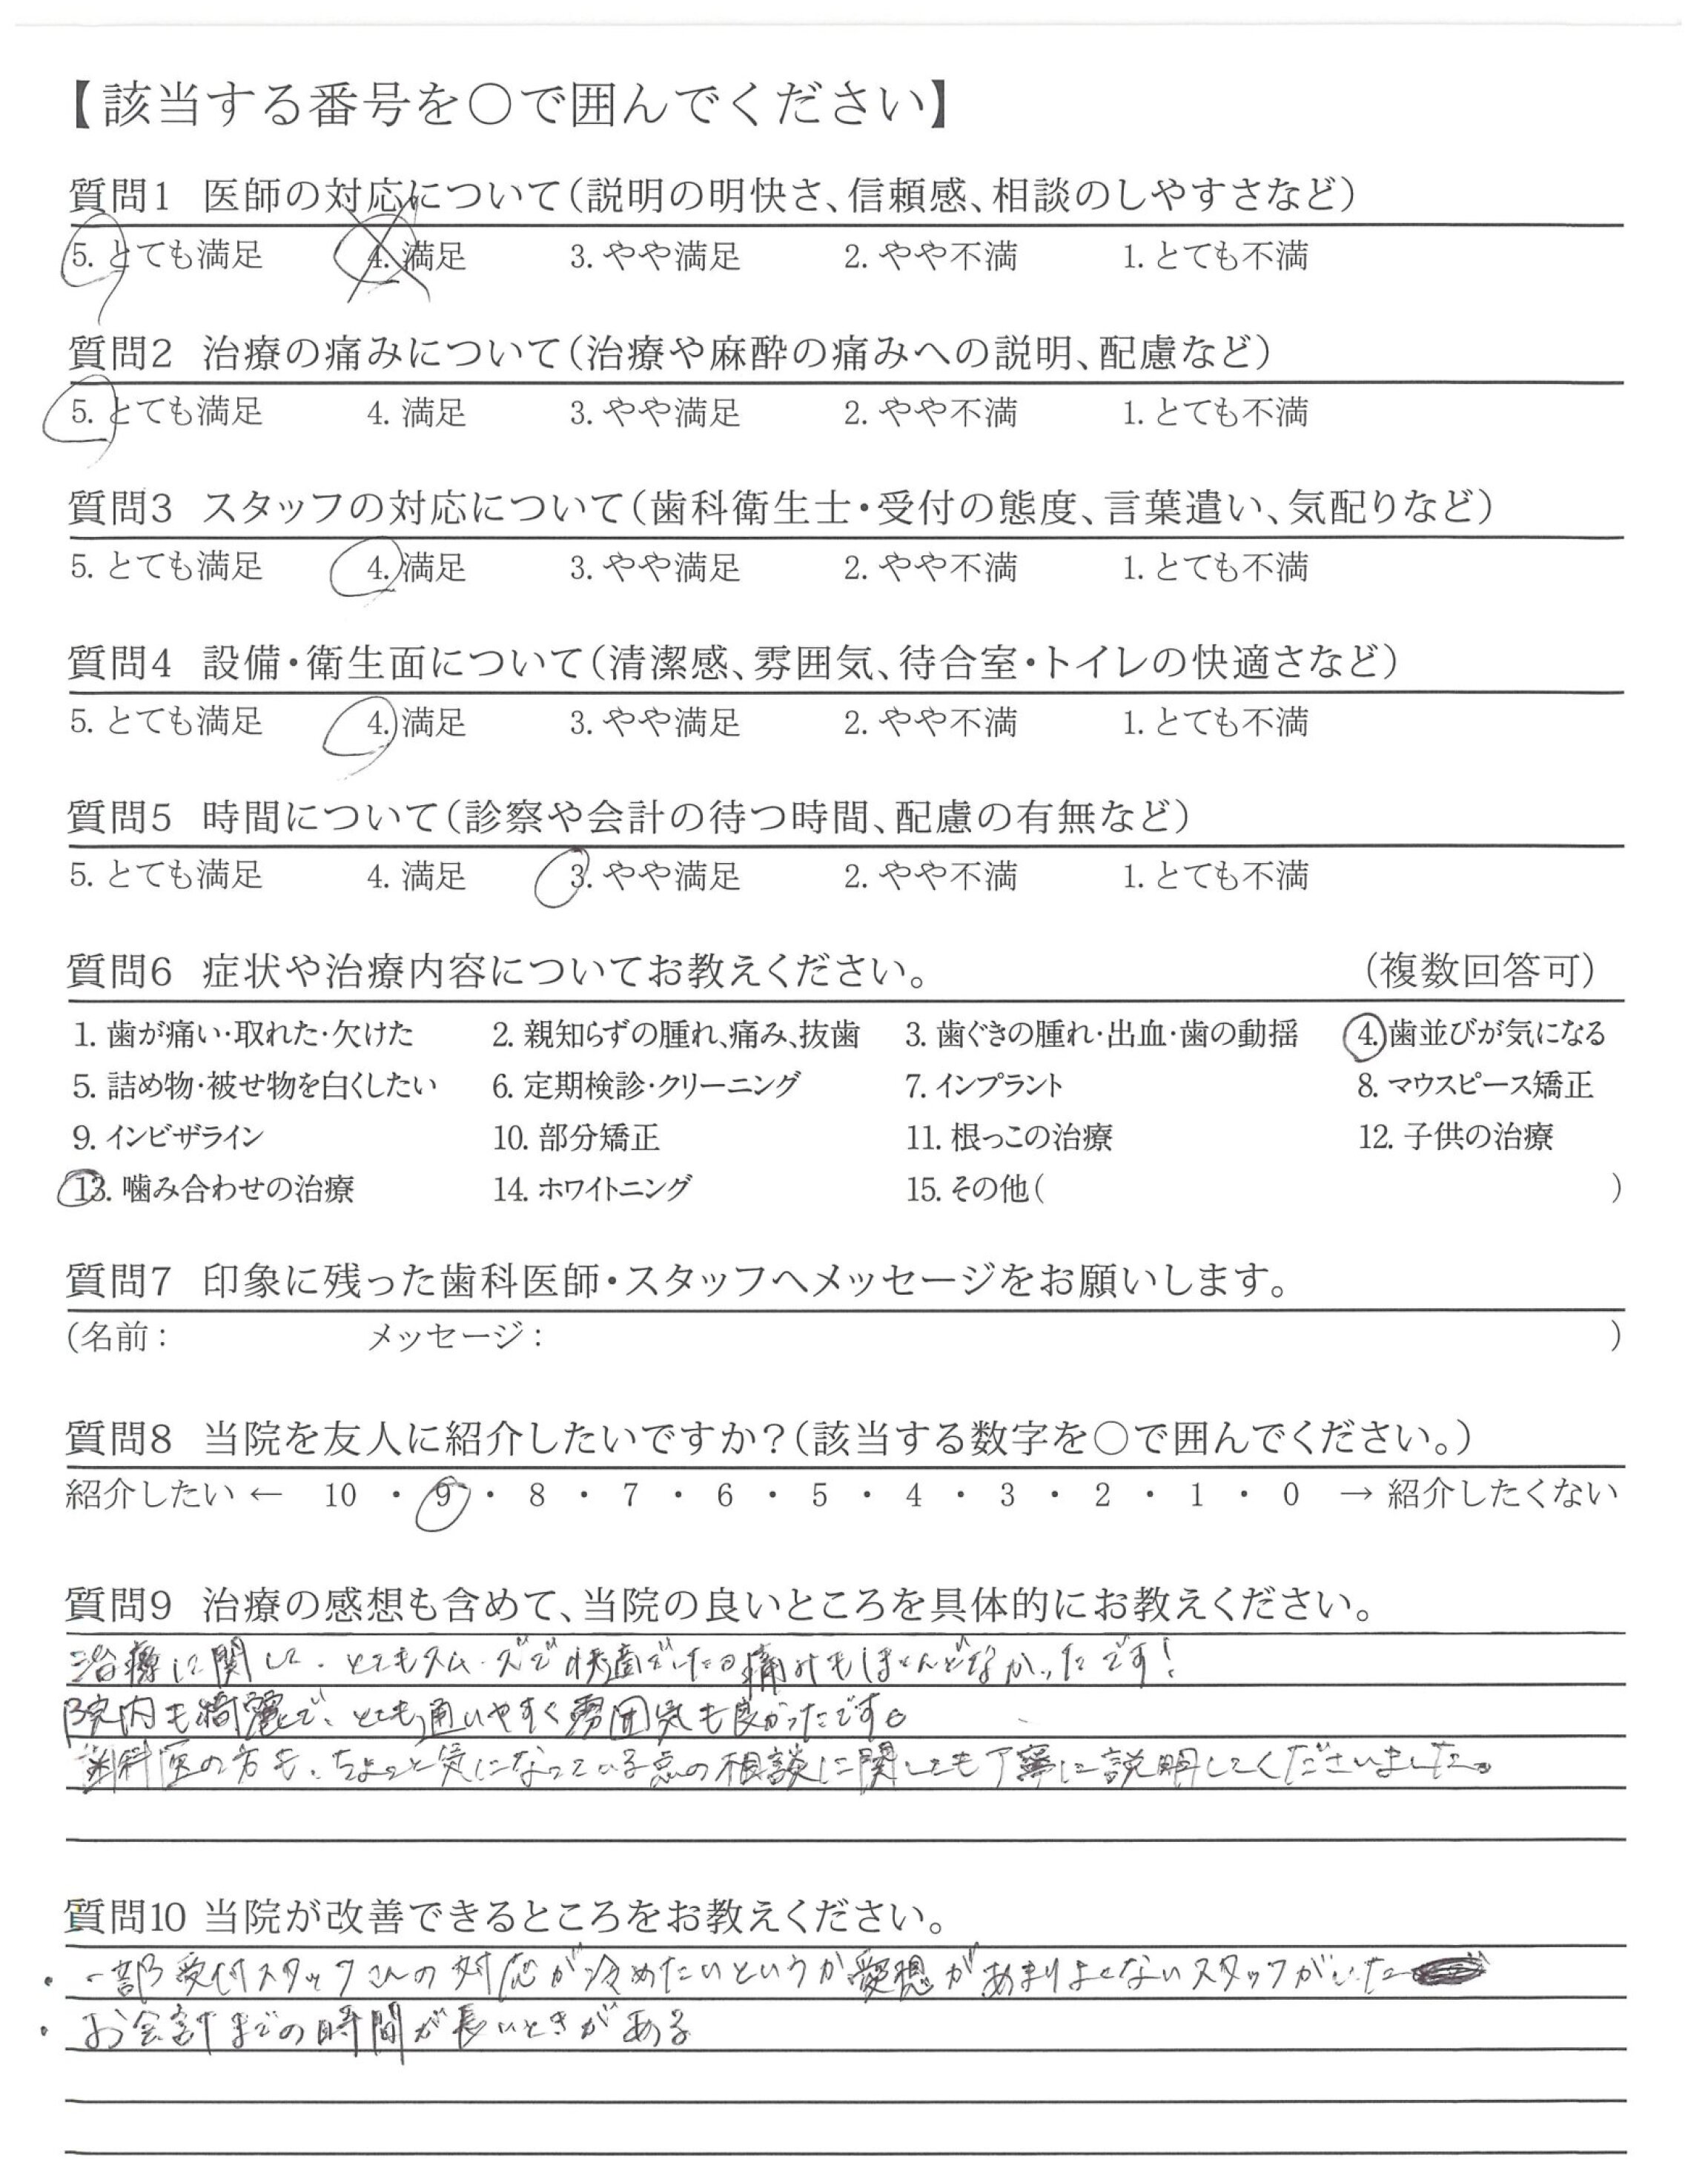 【該当する番号を〇で囲んでください】
質問1 医師の対応について(説明の明快さ、信頼感、相談のしやすさなど)
5. とても満足 4. 満足 3. やや満足 2. やや不満 1. とても不満
質問2 治療の痛みについて(治療や麻酔の痛みへの説明、配慮など)
5. とても満足 4. 満足 3. やや満足 2. やや不満 1. とても不満
質問3 スタッフの対応について(歯科衛生士・受付の態度、言葉遣い、気配りなど)
5. とても満足 4. 満足 3. やや満足 2. やや不満 1. とても不満
質問4 設備・衛生面について(清潔感、雰囲気、待合室・トイレの快適さなど)
5. とても満足 4. 満足 3. やや満足 2. やや不満 1. とても不満
質問5 時間について(診察や会計の待つ時間、配慮の有無など)
5. とても満足 4. 満足 3. やや満足 2. やや不満 1. とても不満
質問6 症状や治療内容についてお教えください。 (複数回答可)
1. 歯が痛い・取れた・欠けた 2. 親知らずの腫れ、痛み、抜歯 3. 歯ぐきの腫れ・出血・歯の動揺 4. 歯並びが気になる
5. 詰め物・被せ物を白くしたい 6. 定期検診・クリーニング 7. インプラント 8. マウスピース矯正
9. インビザライン 10. 部分矯正 11. 根っこの治療 12. 子供の治療
13. 噛み合わせの治療 14. ホワイトニング 15. その他( )
質問7 印象に残った歯科医師・スタッフへメッセージをお願いします。
(名前: メッセージ: )
質問8 当院を友人に紹介したいですか?(該当する数字を〇で囲んでください。)
紹介したい ← 10 ・ 9 ・ 8 ・ 7 ・ 6 ・ 5 ・ 4 ・ 3 ・ 2 ・ 1 ・ 0 → 紹介したくない
質問9 治療の感想も含めて、当院の良いところを具体的にお教えください。
治療に関して、とてもスムーズで快適でした。痛みもほとんどなかったです!
院内も綺麗で、とても通いやすく雰囲気も良かったです。
歯科医の方も、ちょっと気になっている点の相談に関しても丁寧に説明してくださいました。
質問10 当院が改善できるところをお教えください。
・一部受付スタッフさんの対応が冷めたいというか愛想があまりよくないスタッフがいた
・お会計までの時間が長いときがある